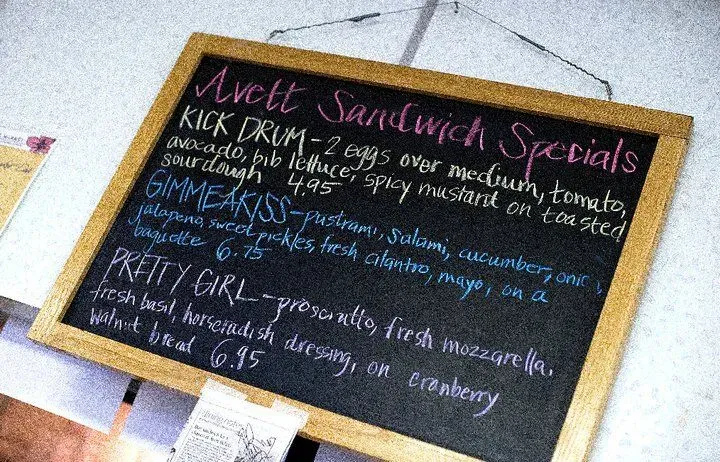 Avett Sandwich Specials
KICK DRUM - 2 eggs over medium, tomato,
avocado, bib lettuce, spicy mustard on toasted
sourdough 4.95
GIMMEAKISS - pastrami, salami, cucumber,
jalapeno, sweet pickles, fresh cilantro, mayo, on a
baguette 6.75
PRETTY GIRL - prosciutto, fresh mozzarella,
fresh basil, horseradish dressing, on cranberry
walnut bread 6.95